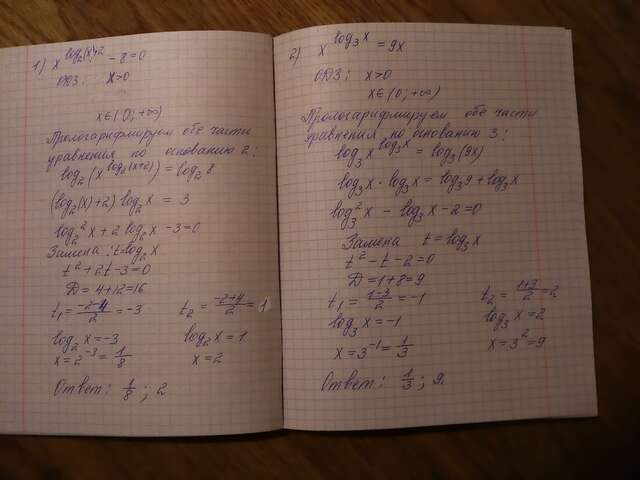 1) x^(log₂(x)+2) - 8 = 0
ОДЗ: x>0
x∈(0; +∞)
Прологарифмируем обе части
уравнения по основанию 2:
log₂(x^(log₂(x+2))) = log₂8
(log₂(x)+2) log₂x = 3
log₂²x + 2log₂x - 3 = 0
Замена: t=log₂x
t²+2t-3=0
D = 4+12=16
t₁ = (-2-4)/2 = -3 t₂ = (-2+4)/2 = 1
log₂x = -3 log₂x = 1
x = 2⁻³ = 1/8 x = 2
Ответ: 1/8 ; 2
2) x^(log₃x) = 9x
ОДЗ: x>0
x∈(0; +∞)
Прологарифмируем обе части
уравнения по основанию 3:
log₃x^(log₃x) = log₃(9x)
log₃x · log₃x = log₃9 + log₃x
log₃²x - log₃x - 2 = 0
Замена t = log₃x
t² - t - 2 = 0
D = 1+8 = 9
t₁ = (1-3)/2 = -1 t₂ = (1+3)/2 = 2
log₃x = -1 log₃x = 2
x = 3⁻¹ = 1/3 x = 3² = 9
Ответ: 1/3 ; 9.